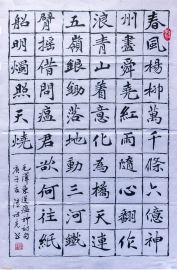 春風楊柳萬千條六億神
州盡舜堯紅雨隨心翻作
浪青山著意化為橋天連
五嶺銀鋤落地動三河鐵
臂搖借問瘟君欲何往紙
船明燭照天燒
毛澤東送瘟神